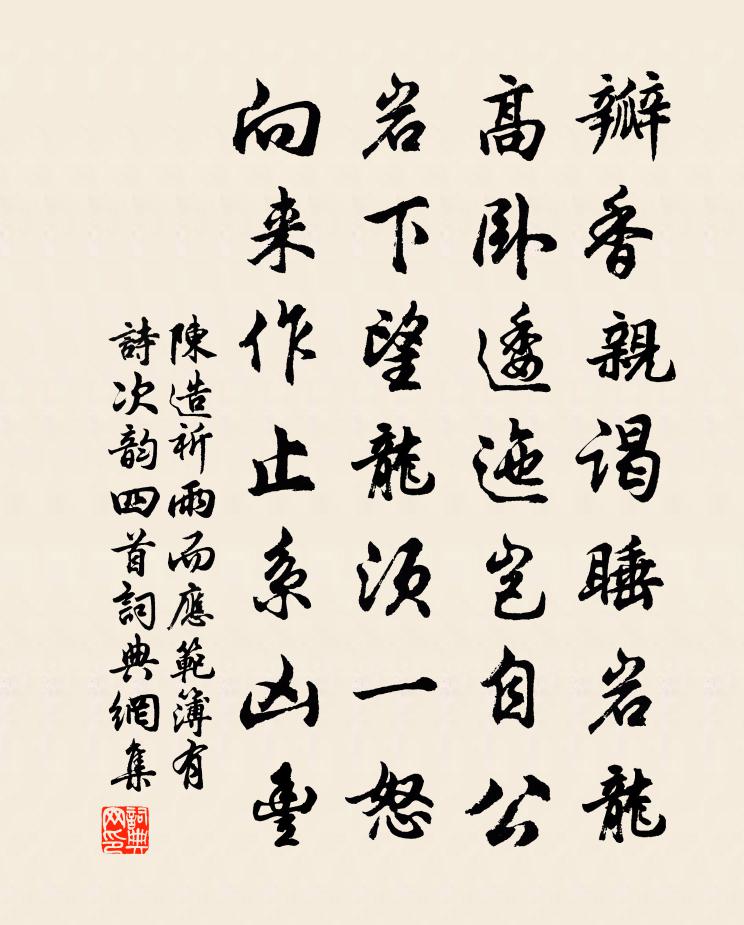 瓣香親谒睡岩龍
高卧逶迤岂自公
岩下望龍须一怒
向来作止系凶豐
陳造祈雨而應範簿有
詩次韵四首詞典網集
詞典网印